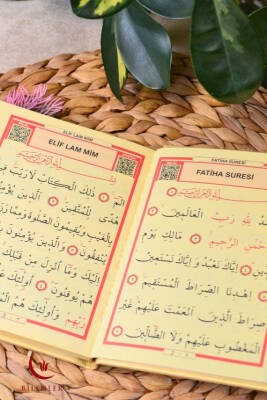 FATİHA SURESİ
FATİHA SURESİ
لِلّٰهِ رَبِّ الْعَالَمِينَ
الرَّحِيمِ مَالِكِ يَوْمِ
اِيَّاكَ نَعْبُدُ وَاِيَّاكَ نَسْتَعِينُ
اِهْدِنَا الصِّرَاطَ الْمُسْتَقِيمَ
صِرَاطَ الَّذِينَ اَنْعَمْتَ عَلَيْهِمْ غَيْرِ
الْمَغْضُوبِ عَلَيْهِمْ وَلَا الضَّالِّينَ
ELİF LAM MİM
ELİF LAM MİM
الٓمٓ ذٰلِكَ الْكِتَابُ لَا رَيْبَ
هُدًى لِلْمُتَّقِينَ اَلَّذِينَ
بِالْغَيْبِ وَيُقِيمُونَ الصَّلٰوةَ وَمِمَّا
يُنْفِقُونَ وَالَّذِينَ يُؤْمِنُونَ
اِلَيْكَ وَمَا اُنْزِلَ مِنْ قَبْلِكَ
هُمْ يُوقِنُونَ اُولٰئِكَ
رَبِّهِمْ وَاُولٰئِكَ هُمُ